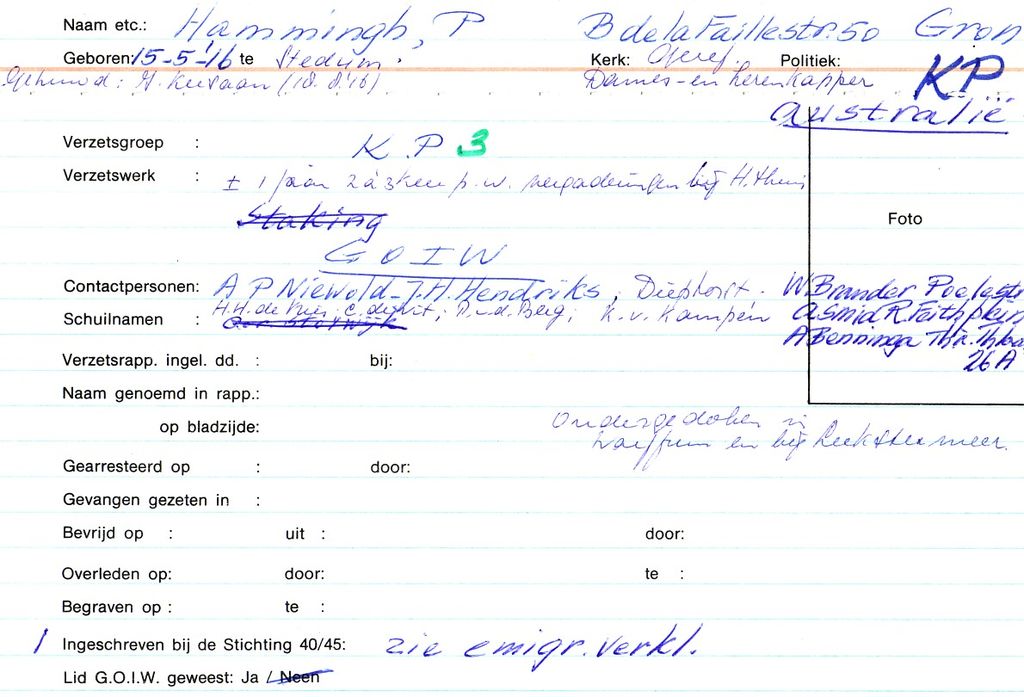 Naam etc.: Hammingh, P B de la Faillestr. 50 Gron
Geboren: 15-5-'16 te Stedum. Kerk: Geref. Politiek: KP
Gehuwd: (18.8.'16) Dames- en herenkapper
Australië
Verzetsgroep : K.P 3
Verzetswerk : ± 1 jaar 2 à 3 keer p.w. vergaderingen bij H. thuis
Staking
Foto
GOIW
Contactpersonen: A P Niewold - J.H. Hendriks, Diephorst. W. Brander Poelestr
Schuilnamen : H.H. de C. de Wit; R.v.d. Berg; K. v. Kampen
A Benninga
26A
Verzetsrapp. ingel. dd. : bij:
Naam genoemd in rapp.:
op bladzijde:
Ondergedoken in
Warffum en bij Leekstermeer.
Gearresteerd op : door:
Gevangen gezeten in :
Bevrijd op : uit : door:
Overleden op: door: te :
Begraven op : te :
/ Ingeschreven bij de Stichting 40/45: zie emigr. verkl.
Lid G.O.I.W. geweest: Ja / Neen